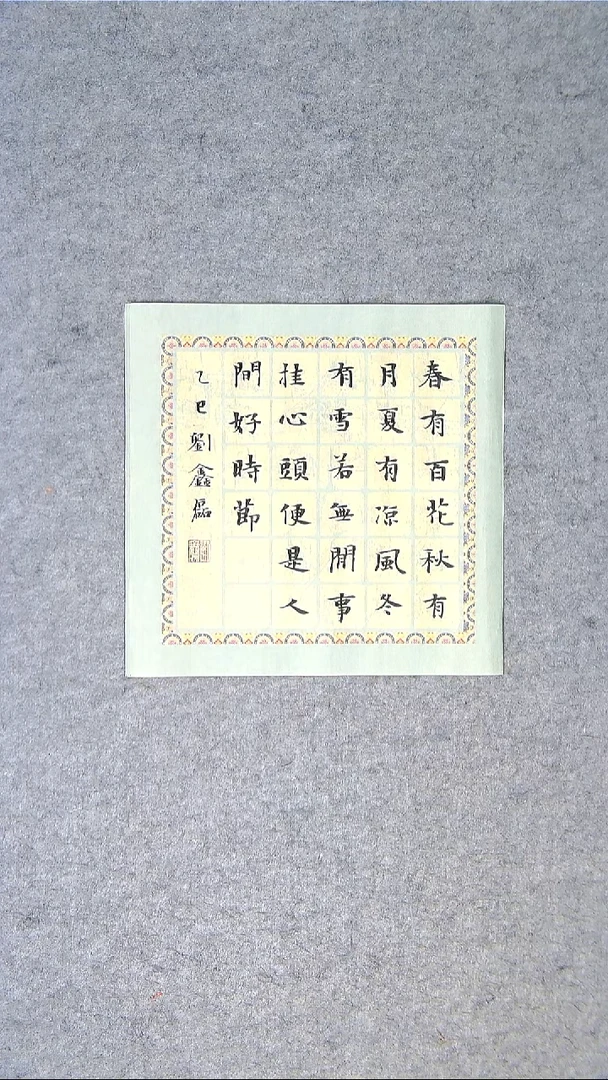 春有百花秋有
月夏有涼風冬
有雪若無閒事
挂心頭便是人
間好時節
乙巳劉鑫磊